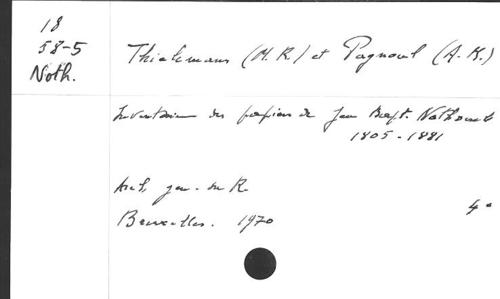 18
58-5
Noth.
Thielemans (M.R.) et Pagnoul (A.M.)
Inventaire des papiers de Jean Bapt. Nothomb
1805-1881
Arch. gén. du R.
Bruxelles. 1970
4°